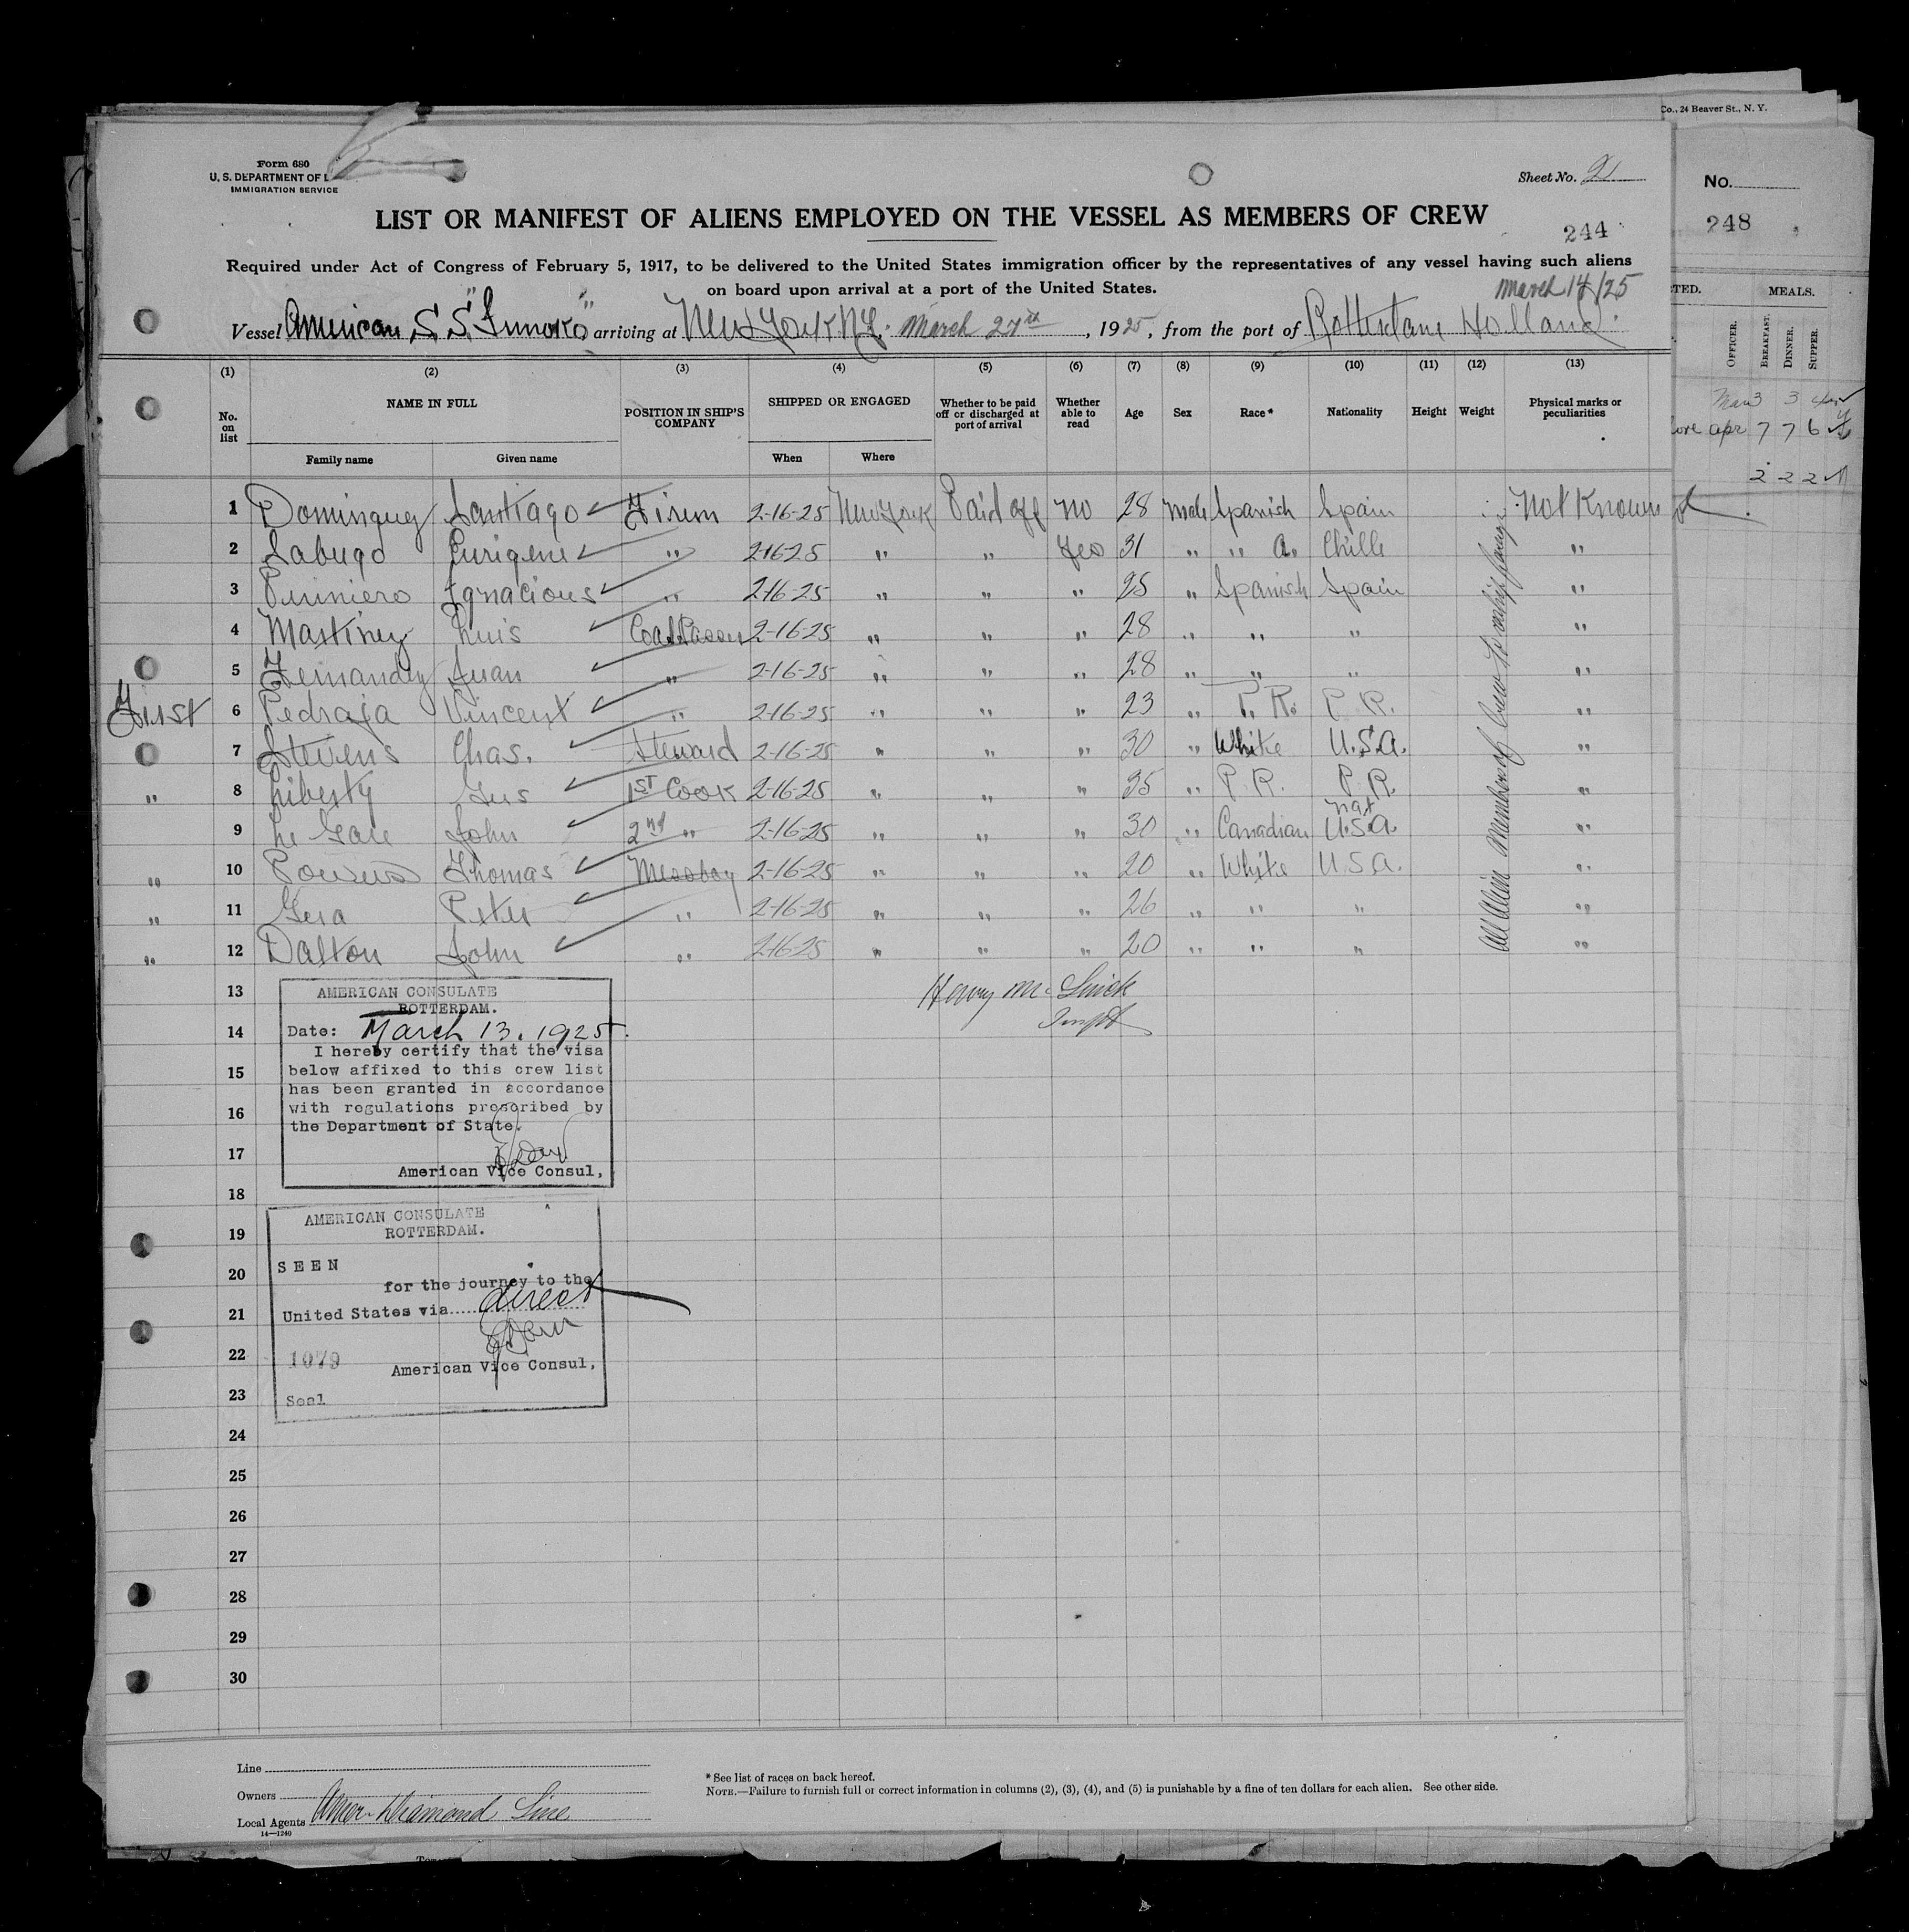 Co., 24 Beaver St., N. Y.
Form 680
U. S. DEPARTMENT OF L
IMMIGRATION SERVICE
Sheet No. 2
No.
LIST OR MANIFEST OF ALIENS EMPLOYED ON THE VESSEL AS MEMBERS OF CREW
244
248
Required under Act of Congress of February 5, 1917, to be delivered to the United States immigration officer by the representatives of any vessel having such aliens
on board upon arrival at a port of the United States.
March 14/25
Vessel American S.S. "Innoko" arriving at New York N.Y. March 27th, 1925, from the port of Rotterdam Holland.
TED. MEALS.
OFFICER. BREAKFAST. DINNER. SUPPER.
(1) (2) (3) (4) (5) (6) (7) (8) (9) (10) (11) (12) (13)
No. on list NAME IN FULL POSITION IN SHIP'S COMPANY SHIPPED OR ENGAGED Whether to be paid off or discharged at port of arrival Whether able to read Age Sex Race* Nationality Height Weight Physical marks or peculiarities
Family name Given name When Where
Mar 3 3
apr 7 7 6
2 2 2
1 Dominguez Santiago Firem 2-16-25 New York Paid off no 28 male Spanish Spain Not Known
2 Labugo Eurigene " 2-16-25 " " Yes 31 " " A. Chille "
3 Piriniero Ignacious " 2-16-25 " " " 25 " Spanish Spain "
4 Martinez Luis Coal Passer 2-16-25 " " " 28 " " " "
5 Fernandez Juan " 2-16-25 " " " 28 " " " "
First 6 Pedraja Vincent " 2-16-25 " " " 23 " P. R. P. R. "
7 Stevens Chas. Steward 2-16-25 " " " 30 " White U.S.A. "
" 8 Liberty Gus 1ST Cook 2-16-25 " " " 35 " P. R. P. R. "
nat
9 Le Gare John 2nd " 2-16-25 " " " 30 " Canadian U.S.A. "
" 10 Powers Thomas Messboy 2-16-25 " " " 20 " White U.S.A. "
" 11 Gera Peter " 2-16-25 " " " 26 " " " "
" 12 Dalton John " 2-16-25 " " " 20 " " " "
All Alien Members of Crew
13
14
15
16
17
18
19
20
21
22
23
24
25
26
27
28
29
30
Henry Mc
Inspt
AMERICAN CONSULATE
ROTTERDAM.
Date: March 13. 1925.
I hereby certify that the visa
below affixed to this crew list
has been granted in accordance
with regulations prescribed by
the Department of State.
American Vice Consul,
AMERICAN CONSULATE
ROTTERDAM.
SEEN
for the journey to the
United States via direct
1079
American Vice Consul,
Seal
Line
Owners
Local Agents Amer. Diamond Line
14—1240
* See list of races on back hereof.
NOTE.—Failure to furnish full or correct information in columns (2), (3), (4), and (5) is punishable by a fine of ten dollars for each alien. See other side.